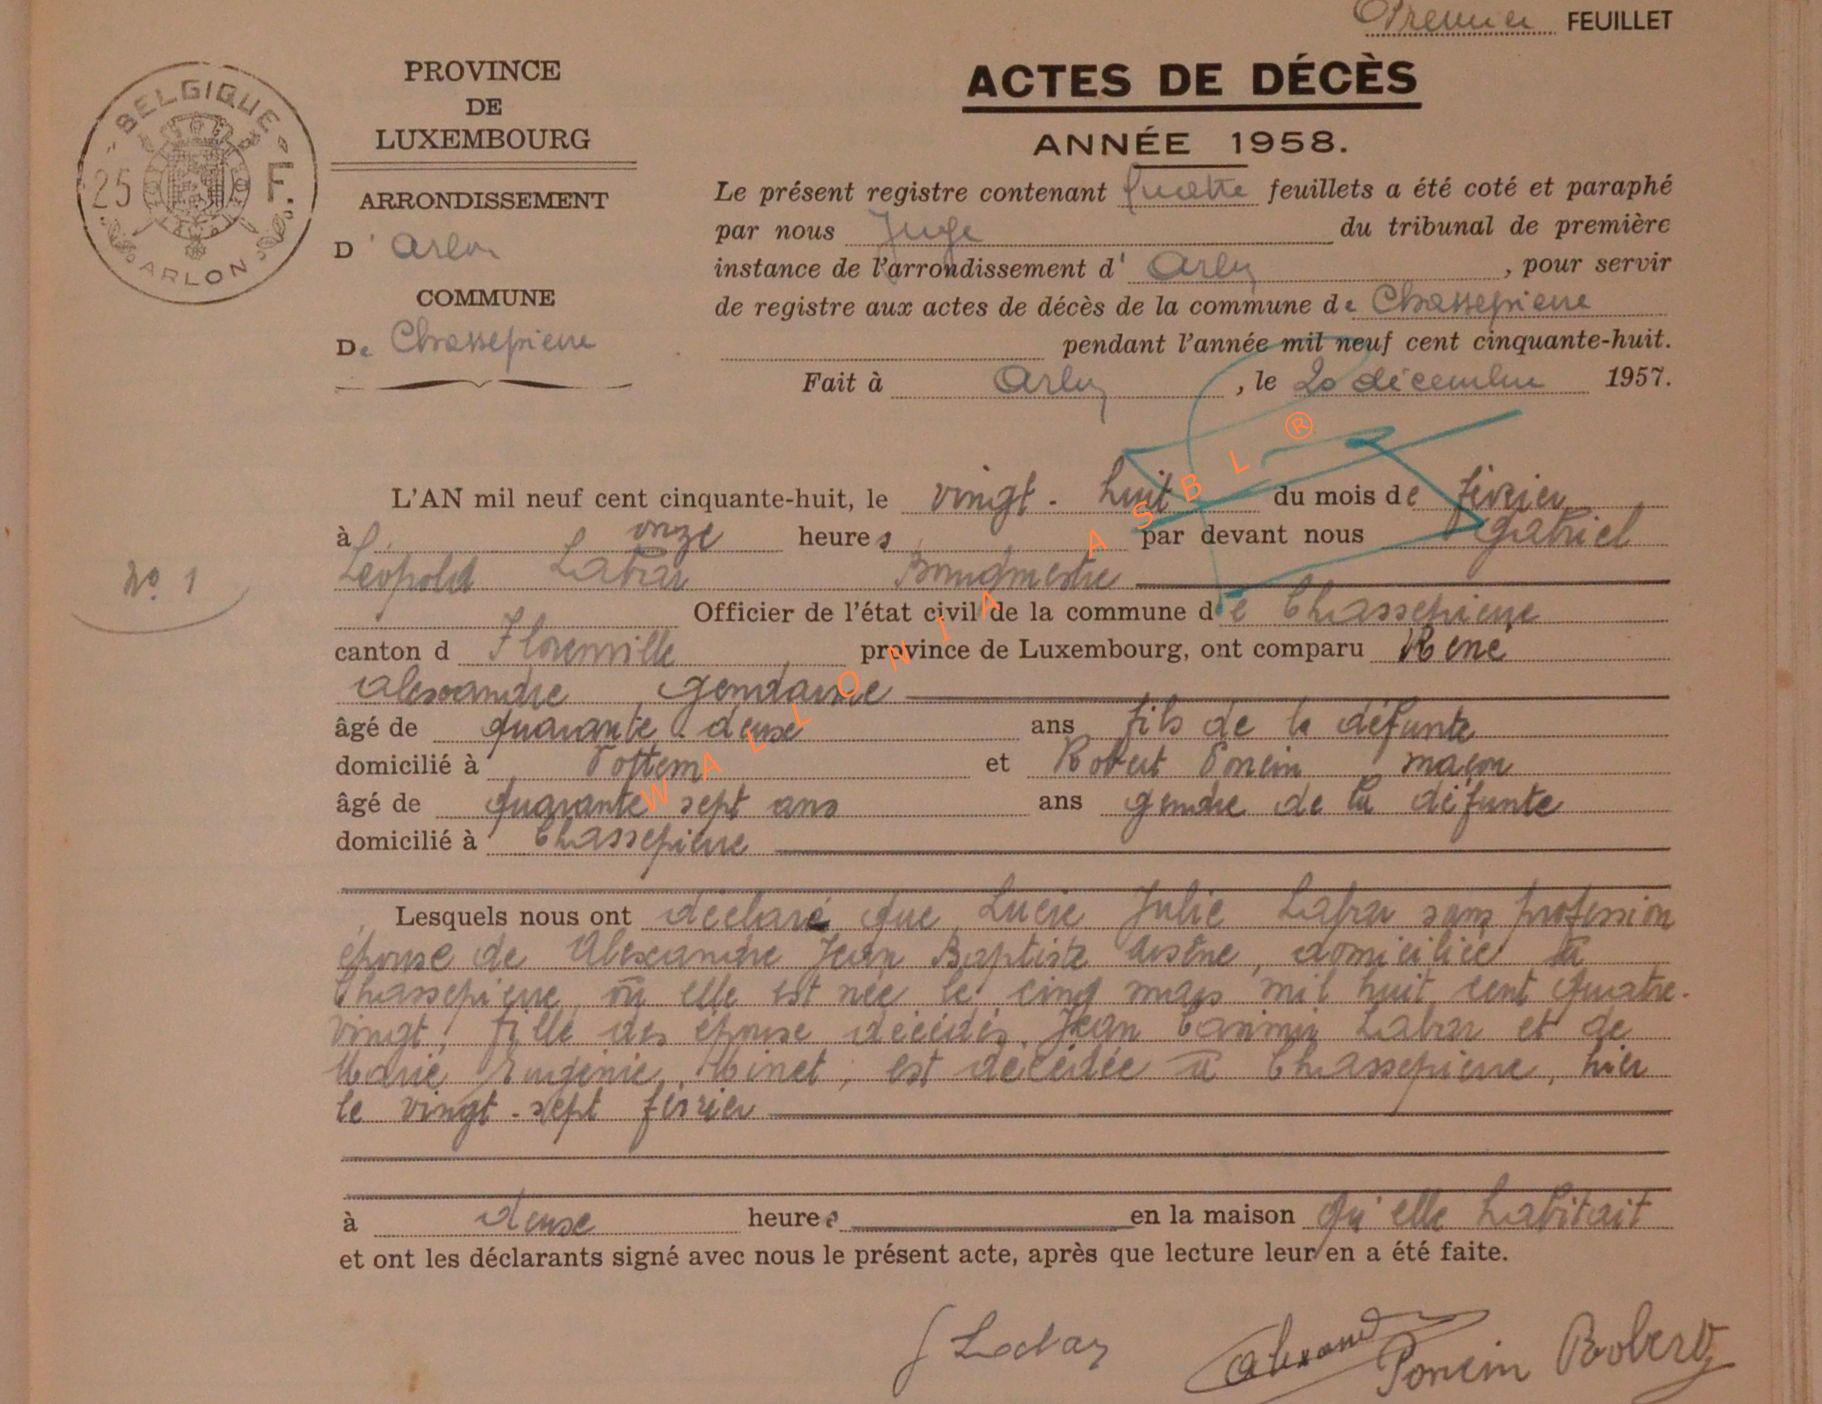 Premier FEUILLET
BELGIQUE
25 F.
ARLON
PROVINCE
DE
LUXEMBOURG
ARRONDISSEMENT
D' Arlon
COMMUNE
De Chassepierre
ACTES DE DÉCÈS
ANNÉE 1958.
Le présent registre contenant quatre feuillets a été coté et paraphé
par nous Juge du tribunal de première
instance de l'arrondissement d' Arlon, pour servir
de registre aux actes de décès de la commune de Chassepierre
pendant l'année mil neuf cent cinquante-huit.
Fait à Arlon, le 20 décembre 1957.
No 1
L'AN mil neuf cent cinquante-huit, le vingt-huit du mois de février
à onze heures par devant nous Gabriel
Léopold Labar Bourgmestre
Officier de l'état civil de la commune de Chassepierre
canton d Florenville province de Luxembourg, ont comparu René
Alexandre gendarme
âgé de quarante deux ans fils de la défunte
domicilié à Pottem et Robert Poncin maçon
âgé de quarante sept ans ans gendre de la défunte
domicilié à Chassepierre
Lesquels nous ont déclaré que Lucie Julie Labar sans profession
épouse de Alexandre Jean Baptiste Arsène, domiciliée à
Chassepierre où elle est née le cinq mars mil huit cent quatre-
vingt, fille des épouse décédés Jean Casimir Labar et de
Marie Eugénie Hinet, est décédée à Chassepierre, hier
le vingt-sept février
à deuse heures en la maison qu'elle habitait
et ont les déclarants signé avec nous le présent acte, après que lecture leur en a été faite.
G Labar Alexandre Poncin Robert
WALLONIA ASBL ®